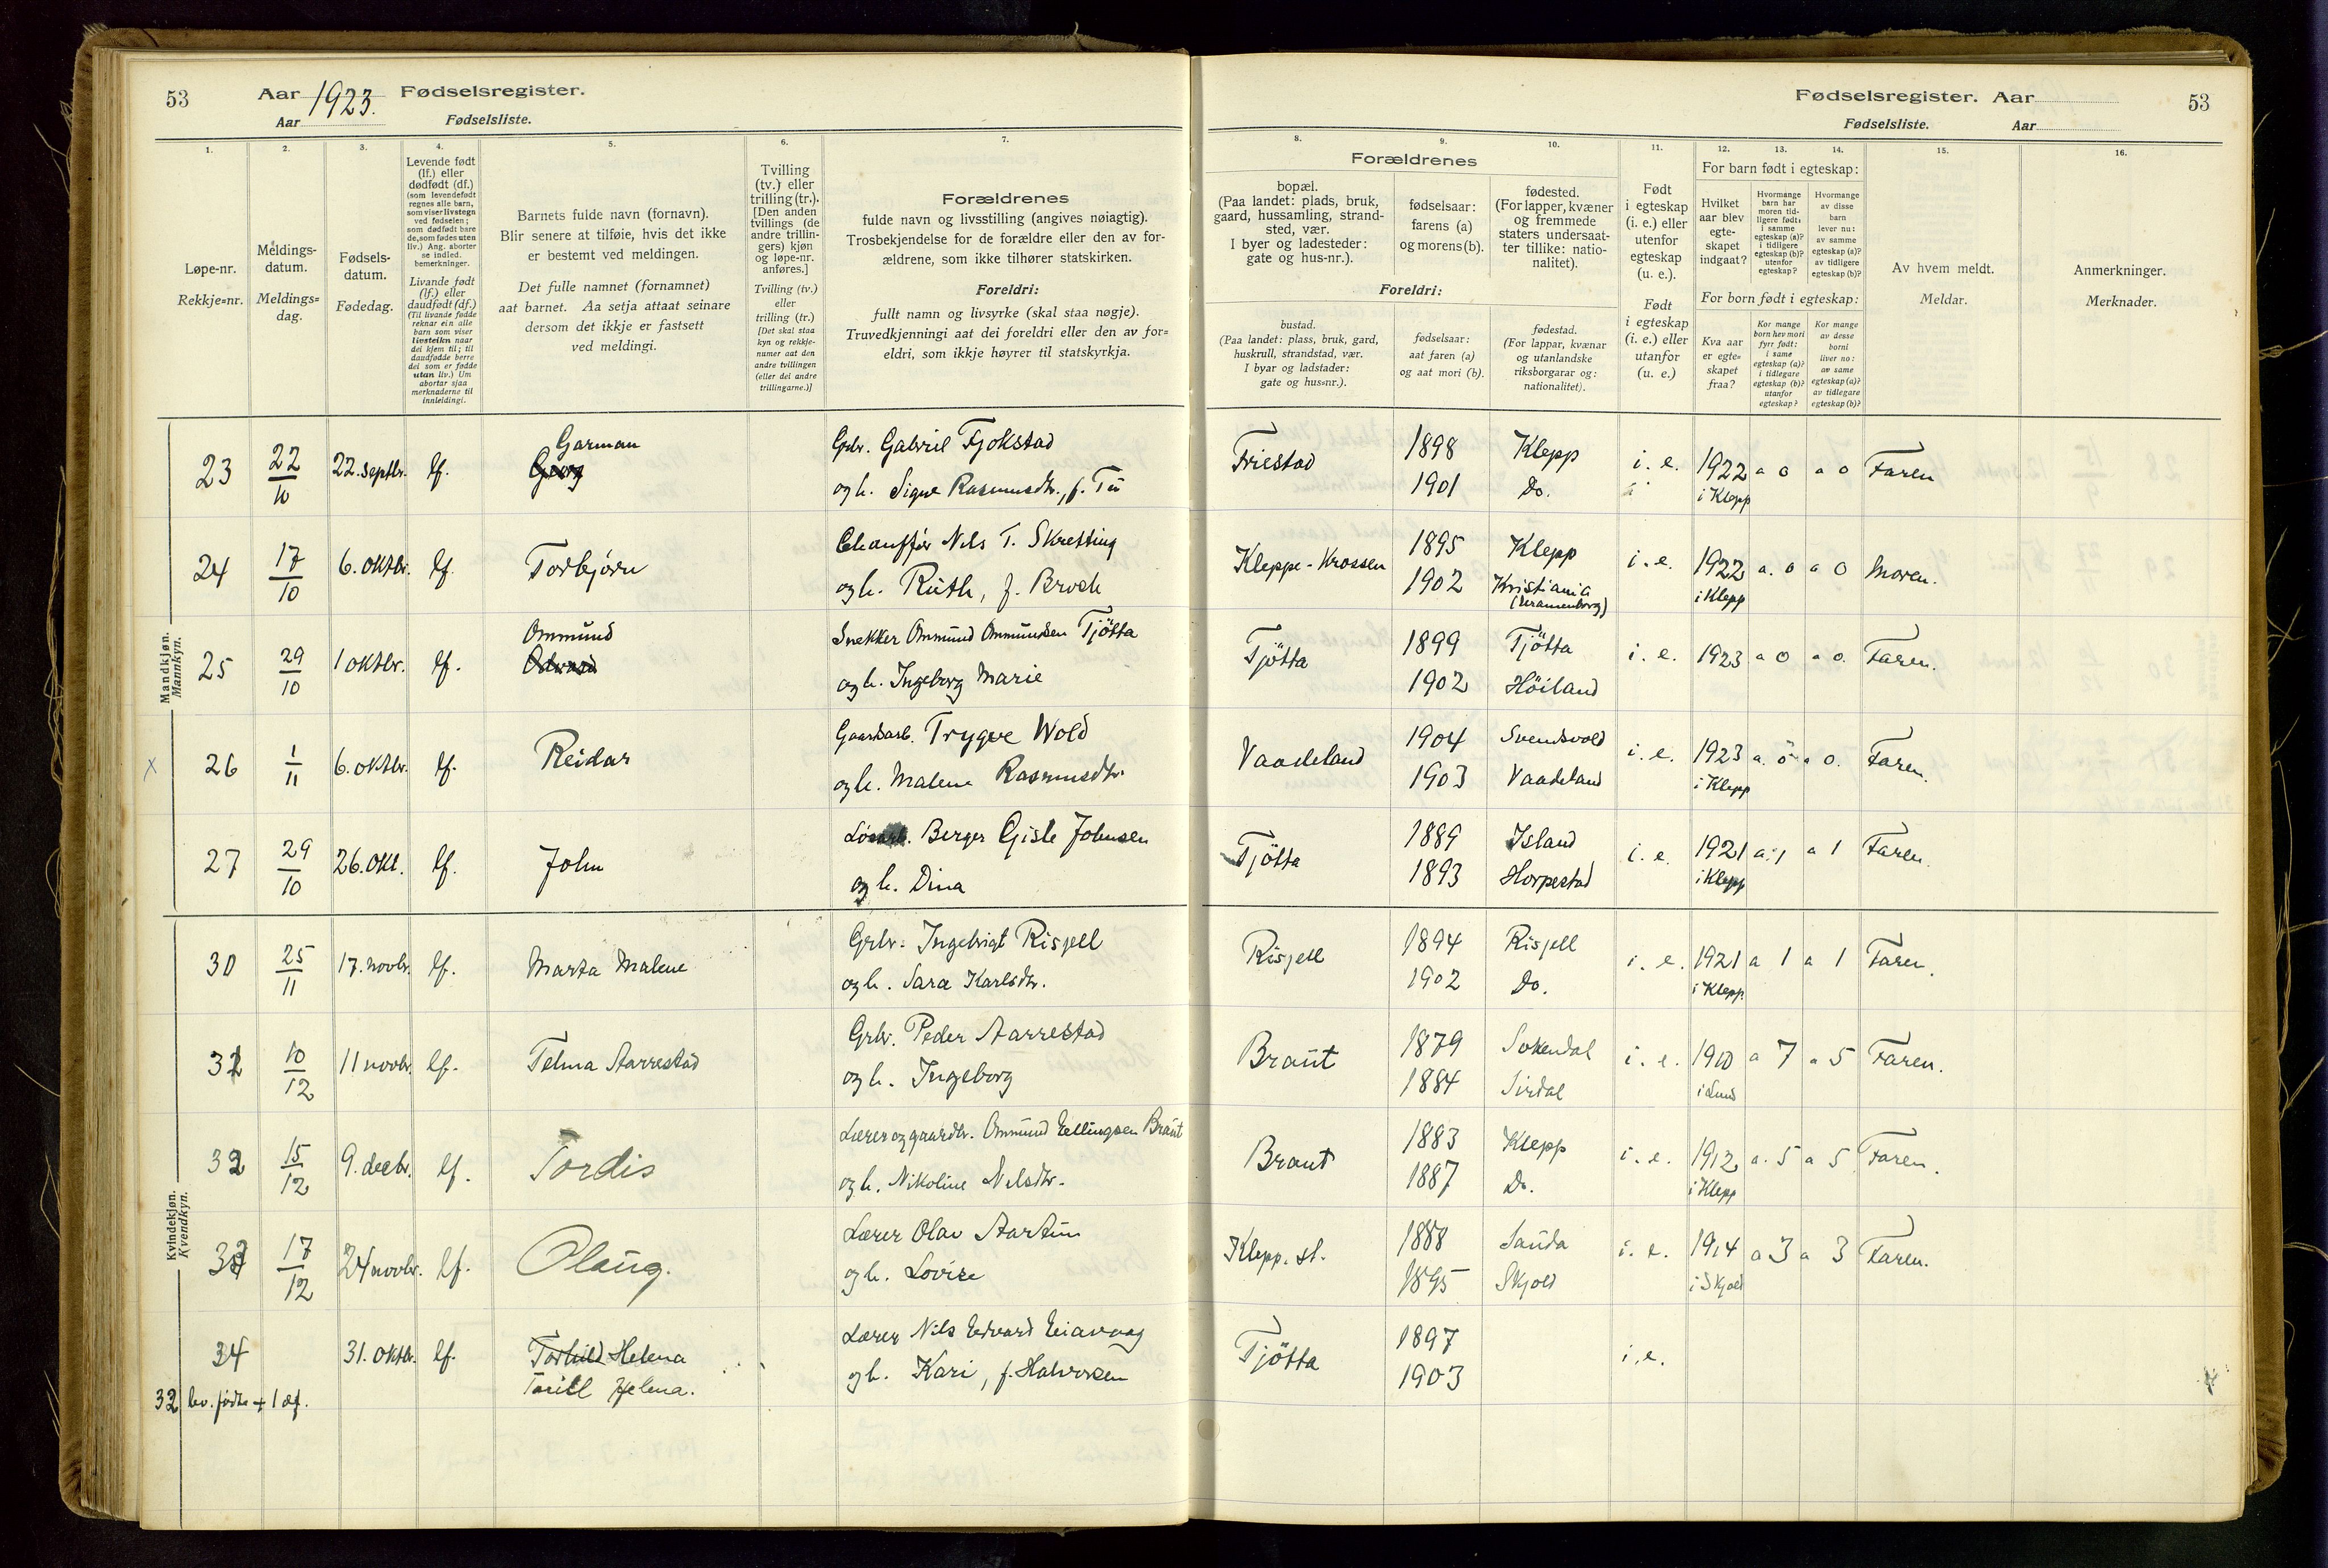 53 Aar 1923. Fødselsregister.
Aar Fødselsliste.
1. 2. 3. 4. 5. 6. 7.
Løpe-nr.
Rekkje=nr.
Meldings-
datum.
Meldings=
dag.
Fødsels-
datum.
Fødedag.
Levende født
(lf.) eller
dødfødt (df.)
(som levendefødt
regnes alle barn,
som viser livstegn
ved fødselen;
som dødfødt bare
de, som fødes uten
liv.) Ang. aborter
se indled.
bemerkninger.
Livande født
(lf.) eller
daudfødt (df.)
(Til livande fødde
reknar ein alle
barn som viser
livsteikn naar
dei kjem til; til
daudfødde berre
dei som er fødde
utan liv.) Um
abortar sjaa
merknaderne til
innleidingi.
Barnets fulde navn (fornavn).
Blir senere at tilføie, hvis det ikke
er bestemt ved meldingen.
Det fulle namnet (fornamnet)
aat barnet. Aa setja attaat seinare
dersom det ikkje er fastsett
ved meldingi.
Tvilling
(tv.) eller
trilling (tr.).
[Den anden
tvillings (de
andre trillin-
gers) kjøn
og løpe-nr.
anføres.]
Tvilling (tv.)
eller
trilling (tr.)
[Det skal staa
kyn og rekkje-
numer aat den
andre tvillingen
(eller dei andre
trillingarne.)]
Forældrenes
fulde navn og livsstilling (angives nøiagtig).
Trosbekjendelse for de forældre eller den av for-
ældrene, som ikke tilhører statskirken.
Foreldri:
fullt namn og livsyrke (skal staa nøgje).
Truvedkjenningi aat dei foreldri eller den av for=
eldri, som ikkje høyrer til statskyrkja.
Fødselsregister. Aar 53
Fødselsliste. Aar
8. 9. 10. 11. 12. 13. 14. 15. 16.
Forældrenes
bopæl.
(Paa landet: plads, bruk,
gaard, hussamling, strand-
sted, vær.
I byer og ladesteder:
gate og hus-nr.).
fødselsaar:
farens (a)
og morens (b).
fødested.
(For lapper, kvæner
og fremmede
staters undersaat-
ter tillike: natio-
nalitet).
Foreldri:
bustad.
(Paa landet: plass, bruk, gard,
huskrull, strandstad, vær.
I byar og ladstader:
gate og hus=nr.).
fødselsaar:
aat faren (a)
og aat mori (b).
fødestad.
(For lappar, kvænar
og utanlandske
riksborgarar og:
nationalitet).
Født
i egteskap
(i. e.) eller
utenfor
egteskap
(u. e.).
Født
i egteskap
(i. e.) eller
utanfor
(u. e.)
For barn født i egteskap:
Hvilket
aar blev
egte-
skapet
indgaat?
Hvormange
barn har
moren tid-
ligere født:
i samme
egteskap (a)?
i tidligere
egteskap (b)?
utenfor
egteskap?
Hvormange
av disse
barn
lever nu:
av samme
egteskap (a)?
av tidligere
egteskap (b)?
For born født i egteskap:
Kva aar
er egte=
skapet
fraa?
Kor mange
born hev mori
fyrr født:
i same
egteskap (a)?
i tidlegare
egteskap (b)?
utanfor
egteskap?
Kor mange
av desse
borni
liver no:
av same
egteskap (a)?
av tidlegare
egteskap (b)?
Av hvem meldt.
Meldar.
Anmerkninger.
Merknader.
Mandkjøn.
Mannkyn.
Garman
23 22/10 22. septbr. lf. Georg Grbr. Gabriel Fjokstad Friestad 1898 Klepp i. e. 1922 a 0 a 0 Faren
og h. Signe Rasmusdtr., f. Tu 1901 Do. i Klepp
24 17/10 6. oktbr. lf. Torbjørn Chauffør Nils T. Skretting Kleppe-Krossen 1895 Klepp i. e. 1922 a. 0 a 0 Moren.
og h. Ruth, f. Broch 1902 Kristiania i Klepp
Ommund
25 29/10 1 oktbr. lf. Snekker Ommund Ommundsen Tjötta Tjötta 1899 Tjötta i. e. 1923 a 0 a 0. Faren.
og h. Ingeborg Marie 1902 Höiland
x 26 1/11 6. oktbr. lf. Reidar Gaardarb. Trygve Wold Vaadeland 1904 Svendsvold i. e. 1923 a. 0 a 0. Faren.
og h. Malene Rasmusdtr. 1903 Vaadeland i Klepp
27 29/10 26. okt. lf. John Berger Gisle Johnsen Tjötta 1889 Island i. e. 1921 a. 1 a 1 Faren.
og h. Dina 1893 Horpestad i Klepp
Kvindekjøn.
Kvendkyn.
30 25/11 17. novbr. lf. Marta Malene Grbr. Ingebrigt Risjell Risjell 1894 Risjell i. e. 1921 a 1 a 1 Faren.
og h. Sara Karlsdtr. 1902 Do. i Klepp
31 10/12 11 novbr. lf. Telma Aarrestad Grbr. Peder Aarrestad Braut 1879 Sokendal i. e. 1910 a 7 a 5 Faren.
og h. Ingeborg 1884 Sirdal i Lund
32 15/12 9. decbr. lf. Tordis Lærer og gaardbr. Ommund Eellingsen Braut Braut 1883 Klepp i. e. 1912 a. 5 a 5 Faren.
og h. Nikoline Nilsdtr. 1887 Do. i Klepp
33 17/12 24 novbr. lf. Olaug. Lærer Olav Aartun Klepp. st. 1888 Sauda i. e. 1914 a 3 a 3 Faren.
og h. Lovise 1895 Skjold i Skjold
34 31. oktbr. lf. Torhild Helena Lærer Nils Edvard Eiavaag Tjötta 1897 i. e.
Torill Helena. og h. Kari, f. Halvorsen 1903
32 lev. fødte + 1 df.